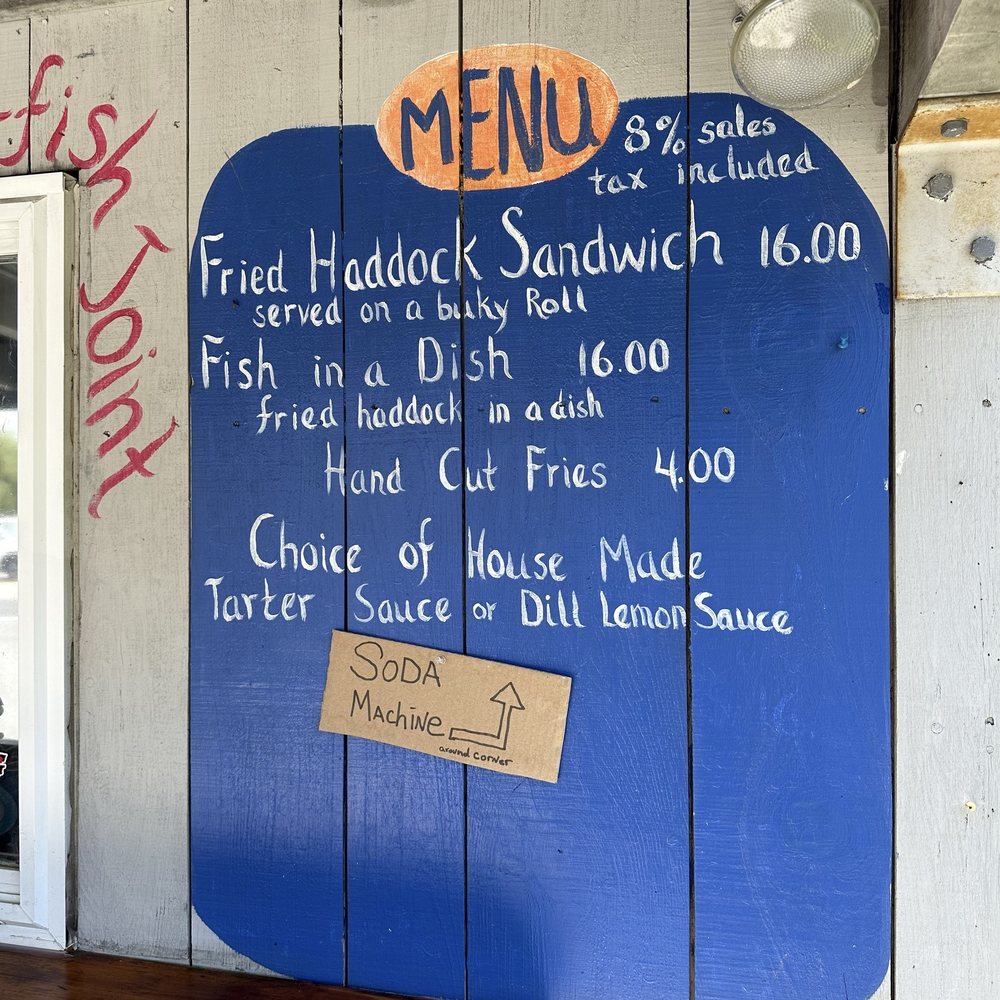 fish Joint
MENU
8% sales
tax included
Fried Haddock Sandwich 16.00
served on a bulky Roll
Fish in a Dish 16.00
fried haddock in a dish
Hand Cut Fries 4.00
Choice of House Made
Tarter Sauce or Dill Lemon Sauce
SODA
MACHINE
around corner